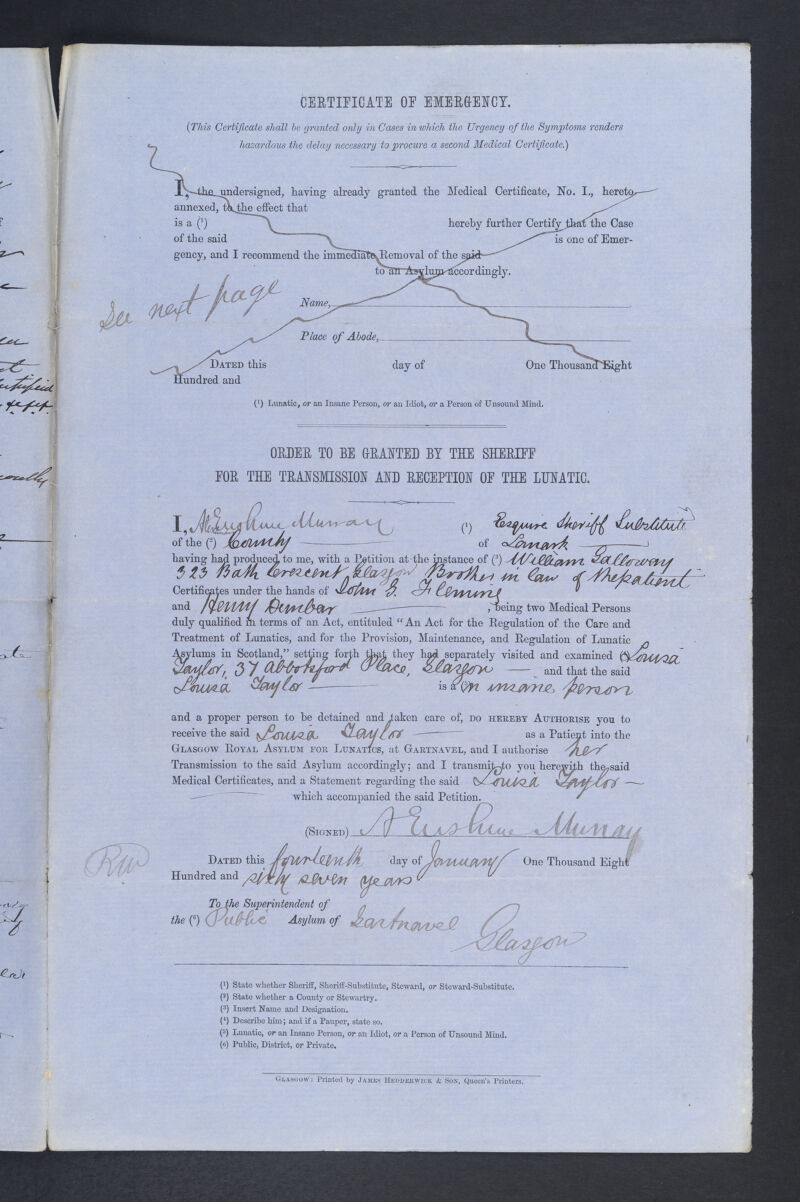 CERTIFICATE OF EMERGENCY.
(This Certificate shall be granted only in Cases in which the Urgency of the Symptoms renders
hazardous the delay necessary to procure a second Medical Certificate.)
I, the undersigned, having already granted the Medical Certificate, No. I., hereto
annexed, to the effect that
is a (¹) hereby further Certify that the Case
of the said is one of Emer-
gency, and I recommend the immediate Removal of the said
to an Asylum accordingly.
See next page
Name,
Place of Abode,
DATED this day of One Thousand Eight
Hundred and
(¹) Lunatic, or an Insane Person, or an Idiot, or a Person of Unsound Mind.
ORDER TO BE GRANTED BY THE SHERIFF
FOR THE TRANSMISSION AND RECEPTION OF THE LUNATIC.
I, A Erskine Murray (¹) Esquire Sheriff Substitute
of the (²) County of Lanark
having had produced to me, with a Petition at the instance of (³) William Galloway
323 Bath Crescent Glasgow Brother in law of the patient
Certificates under the hands of John G. Fleming
and Henry Dunbar, being two Medical Persons
duly qualified in terms of an Act, entituled “An Act for the Regulation of the Care and
Treatment of Lunatics, and for the Provision, Maintenance, and Regulation of Lunatic
Asylums in Scotland,” setting forth that they had separately visited and examined (⁴) Louisa
Taylor, 37 Abbotsford Place, Glasgow — and that the said
Louisa Taylor is a (⁵)n insane person
and a proper person to be detained and taken care of, DO HEREBY AUTHORISE you to
receive the said Louisa Taylor as a Patient into the
GLASGOW ROYAL ASYLUM FOR LUNATICS, at GARTNAVEL, and I authorise her
Transmission to the said Asylum accordingly; and I transmit to you herewith the said
Medical Certificates, and a Statement regarding the said Louisa Taylor —
which accompanied the said Petition.
(SIGNED) A Erskine Murray
DATED this fourteenth day of January One Thousand Eight
Hundred and sixty seven years
To the Superintendent of
the (⁶) Public Asylum of Gartnavel
Glasgow
(¹) State whether Sheriff, Sheriff-Substitute, Steward, or Steward-Substitute.
(²) State whether a County or Stewartry.
(³) Insert Name and Designation.
(⁴) Describe him; and if a Pauper, state so.
(⁵) Lunatic, or an Insane Person, or an Idiot, or a Person of Unsound Mind.
(⁶) Public, District, or Private.
GLASGOW: Printed by JAMES HEDDERWICK & SON, Queen's Printers.